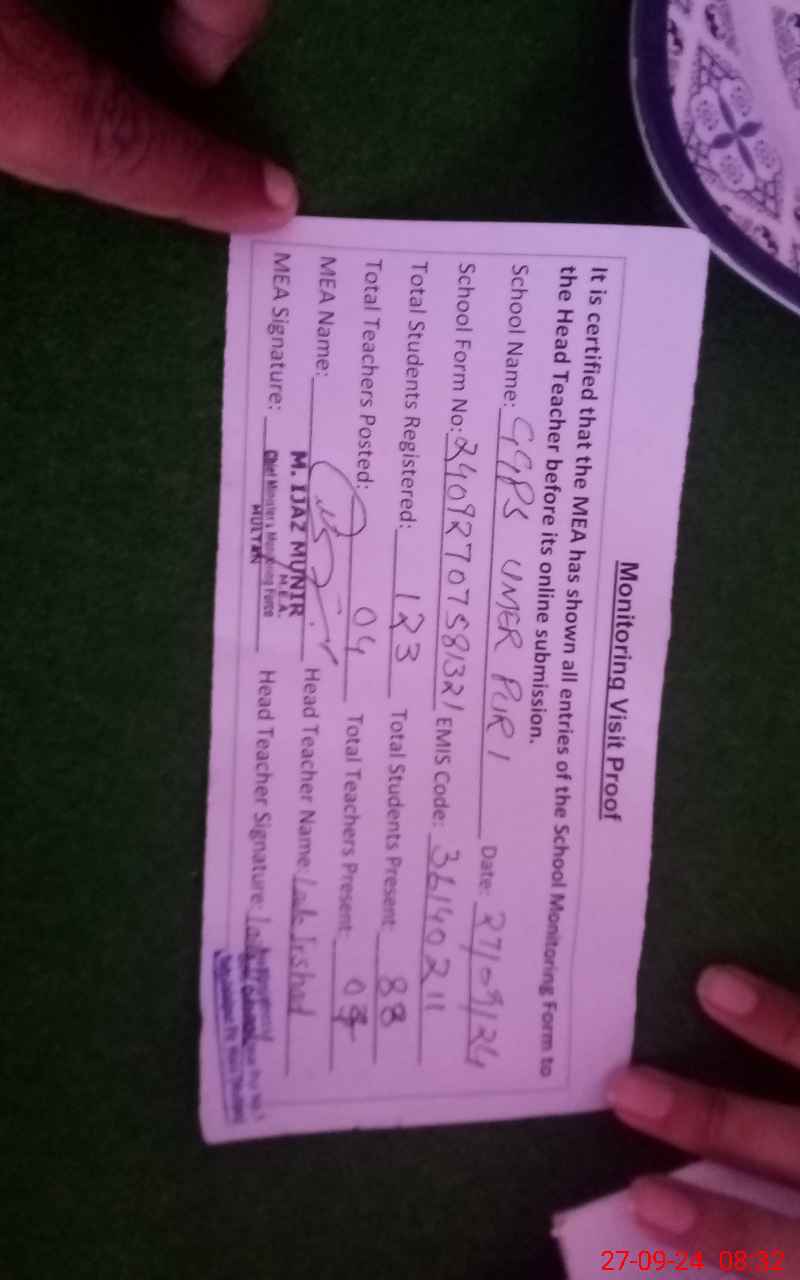 Monitoring Visit Proof
It is certified that the MEA has shown all entries of the School Monitoring Form to
the Head Teacher before its online submission.
School Name: GGPS UMER PUR 1 Date: 27/09/24
School Form No: 24092707581321 EMIS Code: 36140211
Total Students Registered: 123 Total Students Present: 88
Total Teachers Posted: 04 Total Teachers Present: 04
MEA Name: Head Teacher Name: Irshad
M. IJAZ MUNIR
M.E.A.
MEA Signature: Head Teacher Signature:
Chief Minister's Monitoring Force
MULTAN
27-09-24 08:32